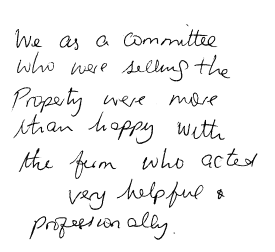 We as a committee
who were selling the
Property were more
than happy with
the firm who acted
very helpful &
professionally.